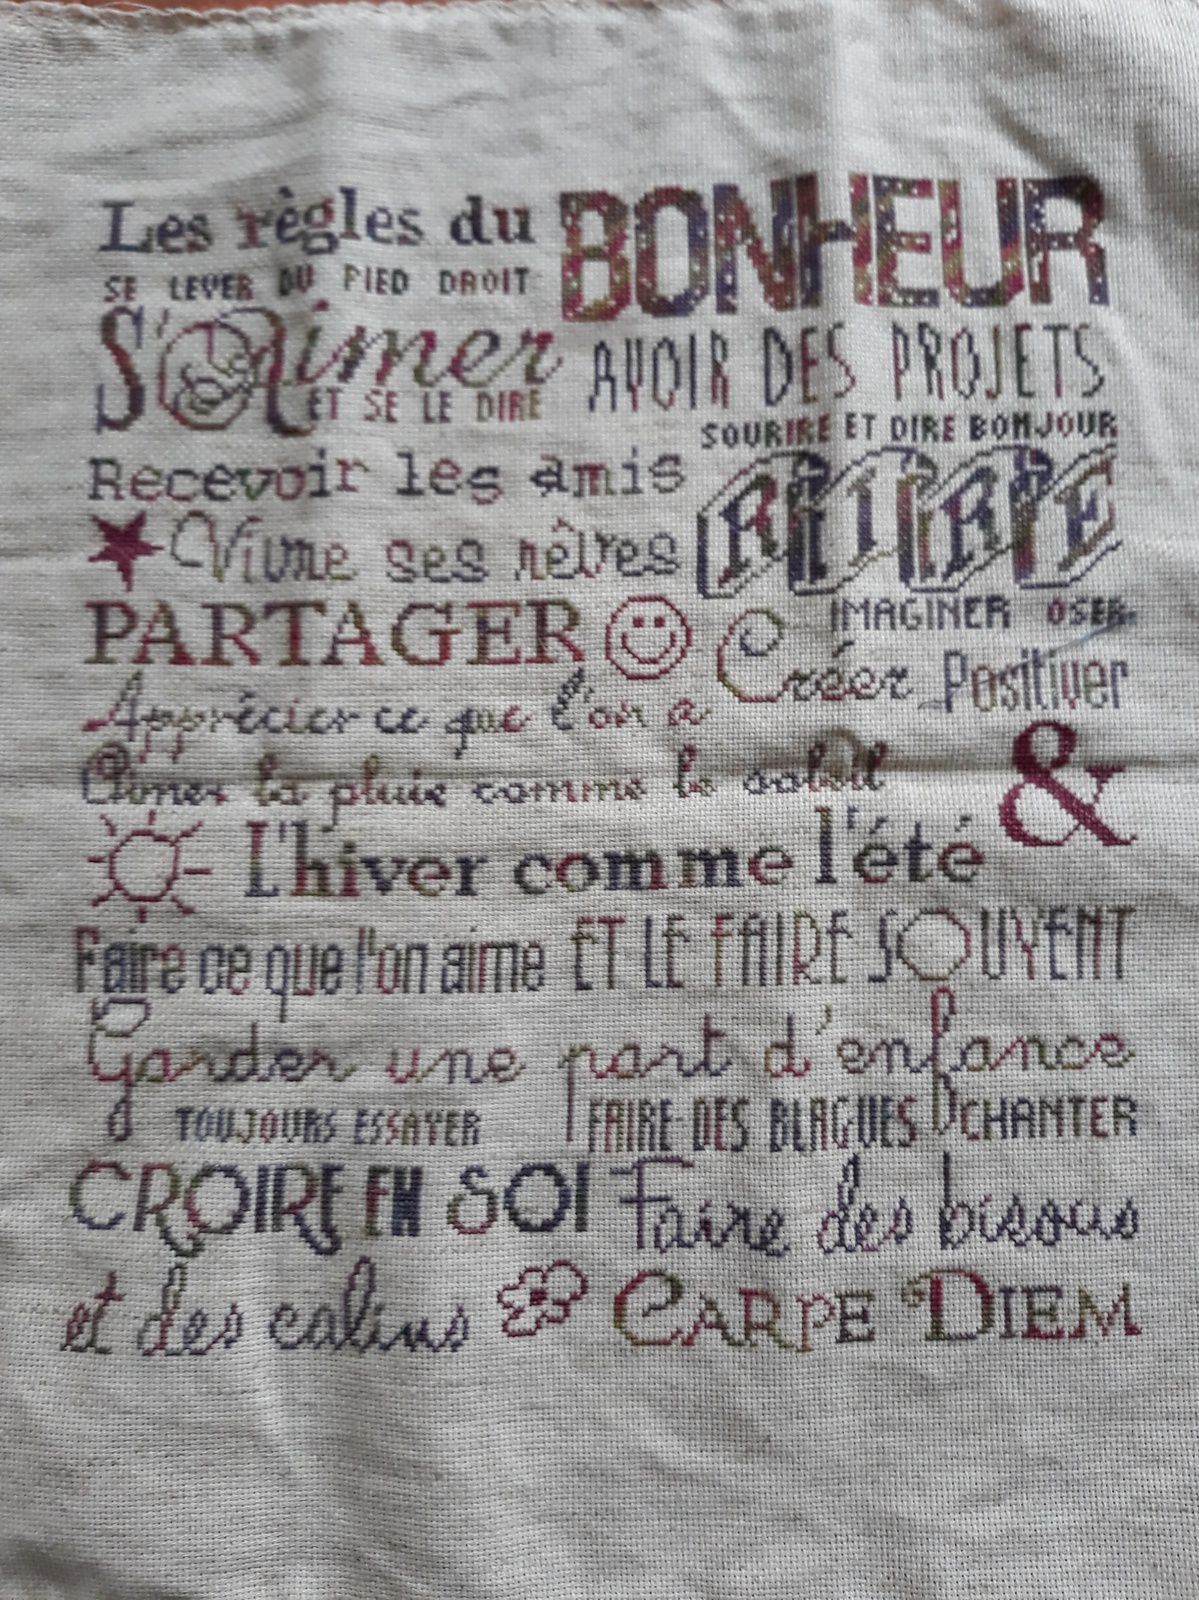 Les règles du BONHEUR
SE LEVER DU PIED DROIT
S'Aimer
ET SE LE DIRE
AVOIR DES PROJETS
SOURIRE ET DIRE BONJOUR
Recevoir les amis
RIRE
Vivre ses rêves
IMAGINER OSER
PARTAGER
Créer Positiver
Apprécier ce que l'on a
Aimer la pluie comme le soleil
&
L'hiver comme l'été
Faire ce que l'on aime ET LE FAIRE SOUVENT
Garder une part d'enfance
TOUJOURS ESSAYER FAIRE DES BLAGUES CHANTER
CROIRE EN SOI Faire des bisous
et des calins CARPE DIEM